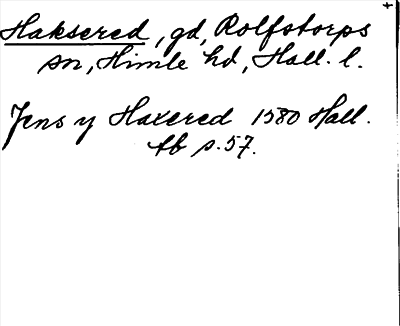 Haksered, gd, Rolfstorps
sn, Himle hd, Hall. l.
Jens y Haxered 1580 Hall.
tb s. 57.